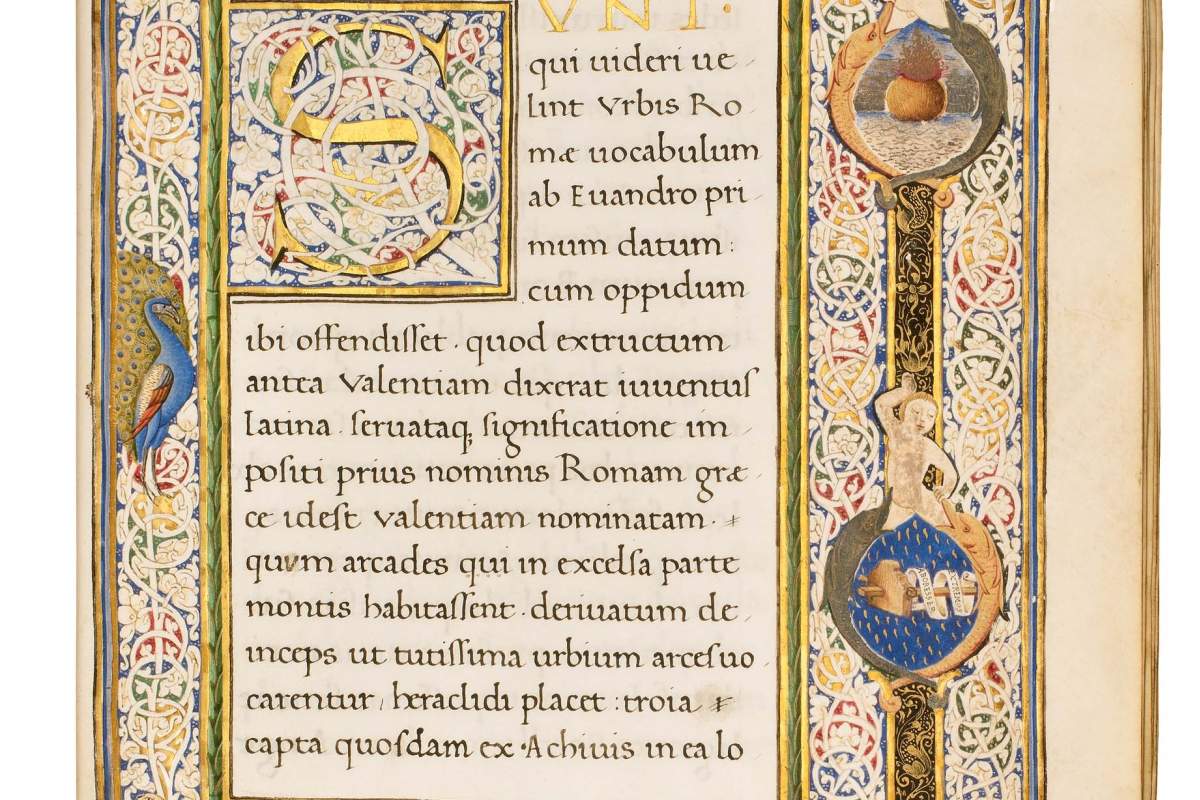 VNT·
S
qui uideri ue-
lint Vrbis Ro-
mæ uocabulum
ab Evandro pri-
mum datum:
cum oppidum
ibi offendisset. quod extructum
antea Valentiam dixerat iuuentus
latina. seruataq; significatione im-
positi prius nominis Romam græ-
ce idest Valentiam nominatam.
quvm arcades qui in excelsa parte
montis habitassent. deriuatum de-
inceps ut tutissima urbium arces uo-
carentur, heraclidi placet: troia
capta quosdam ex Achiuis in ea lo